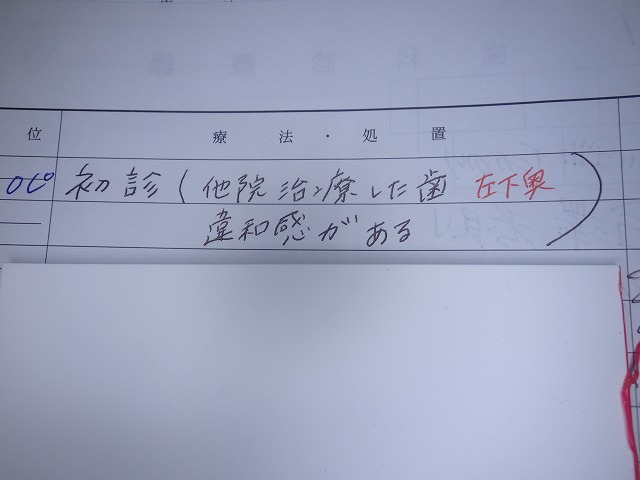 位 療法・処置
初診(他院治療した歯 左下奥
違和感がある)